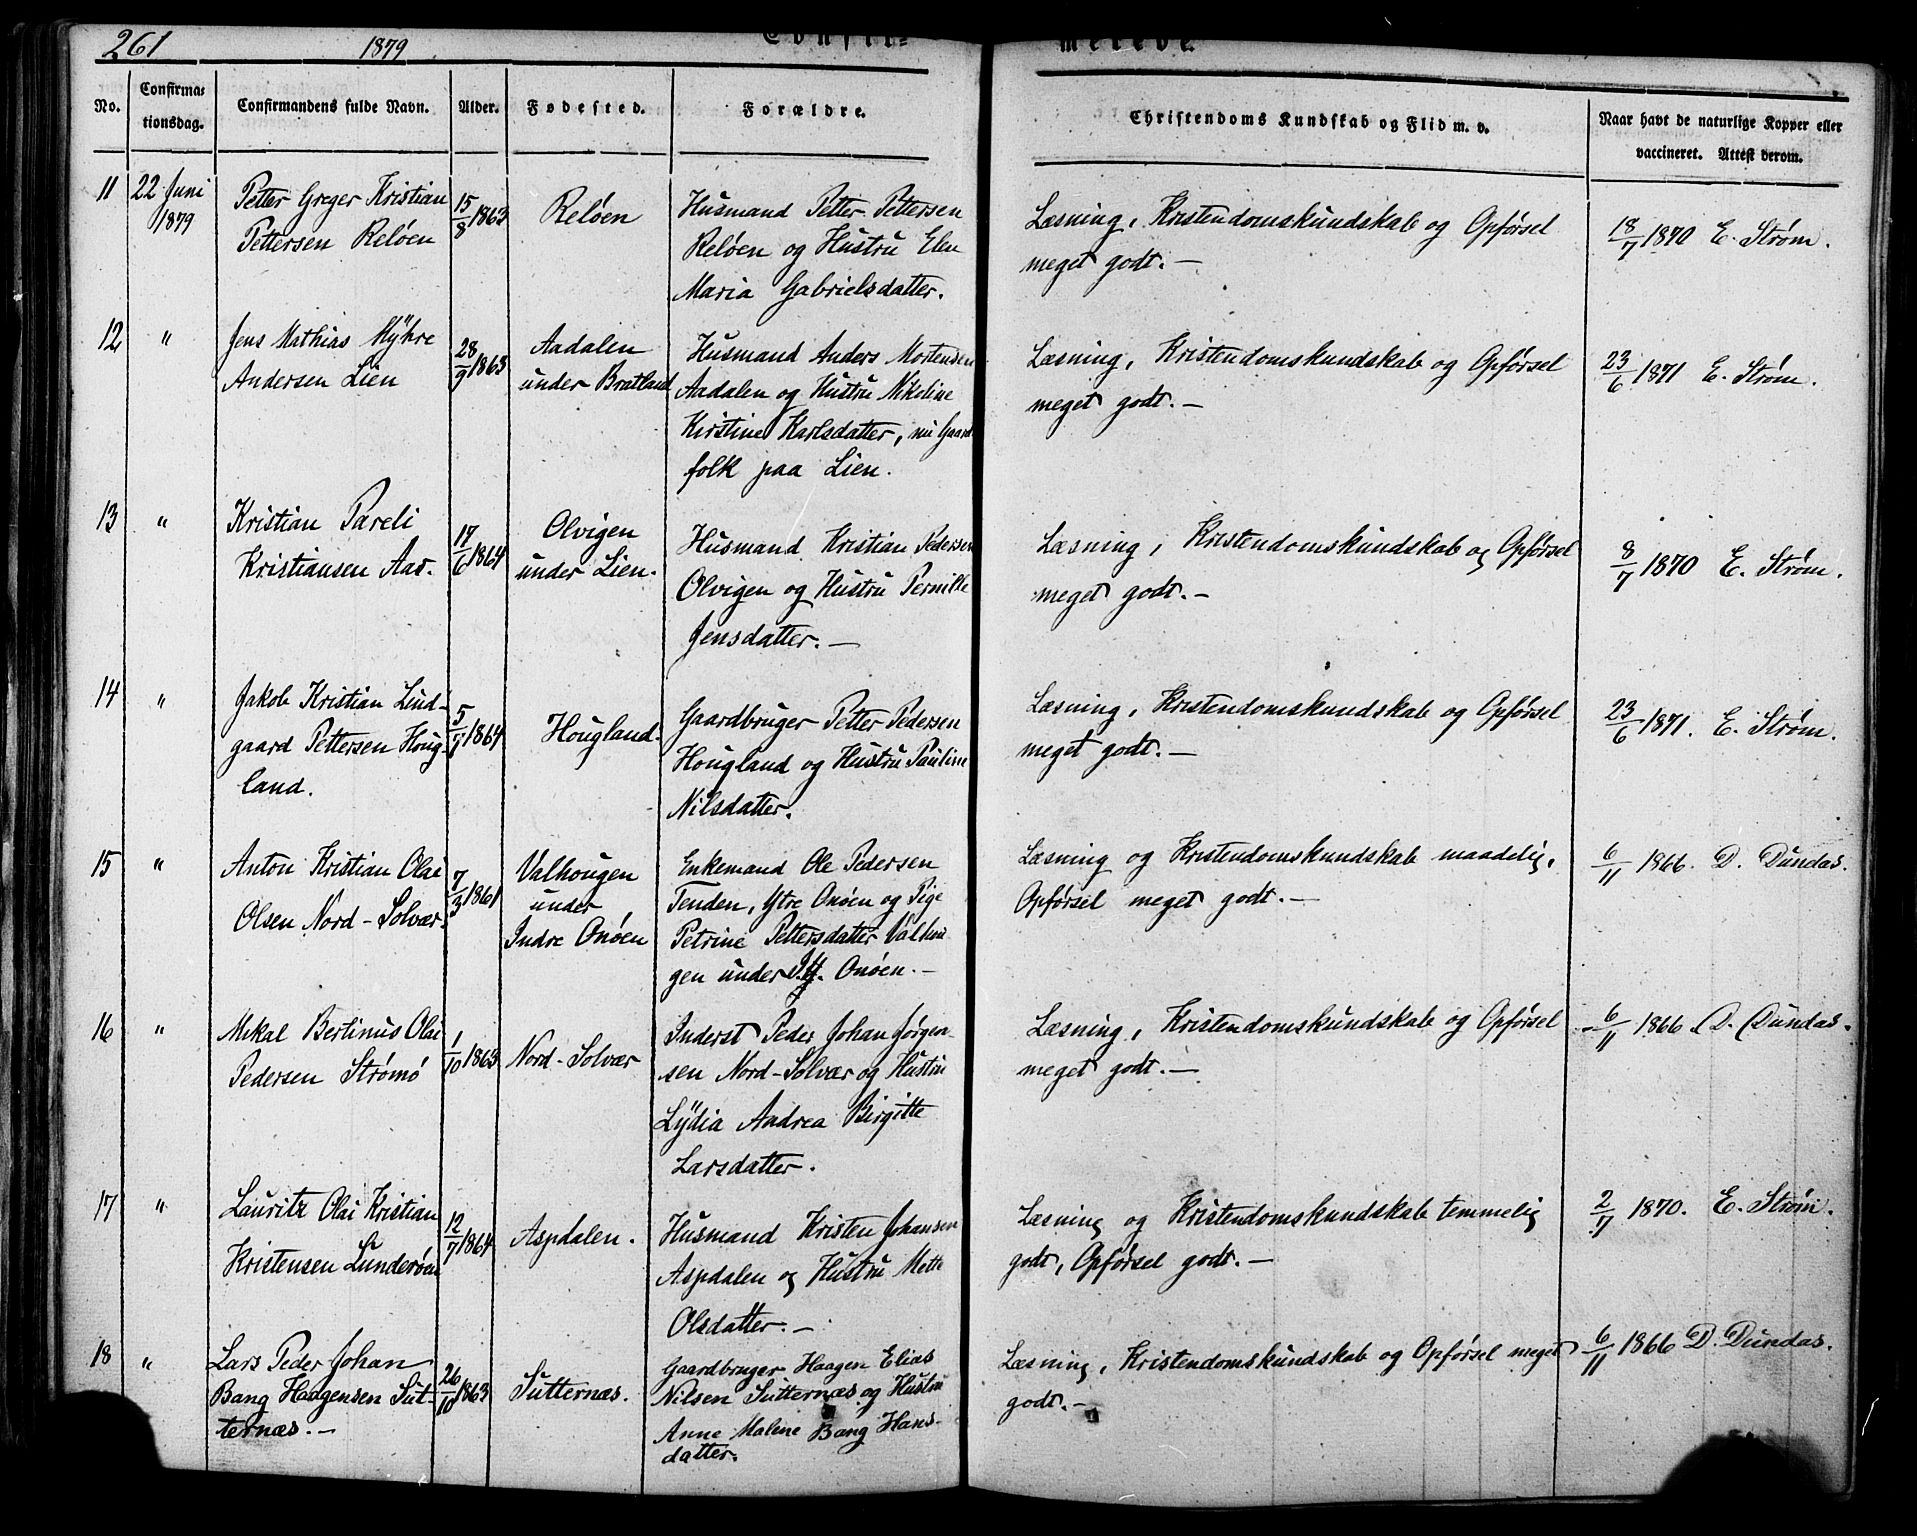 261 1879 Confir- merede.
No. Confirma-tionsdag. Confirmandens fulde Navn. Alder. Fødested. Forældre. Christendoms Kundskab og Flid m. v. Naar havt de naturlige Kopper eller vaccineret. Attest derom.
11 22 Juni Petter Greger Kristian 15/8 1863 Reløen Husmand Petter Pettersen Læsning, Kristendomskundskab og Opførsel 18/7 1870 E. Strøm.
1879 Pettersen Reløen Reløen og Hustru Elen meget godt. —
Maria Gabrielsdatter.
12 " Jens Mathias Myhre 28/9 1863 Aadalen Husmand Anders Mortensen Læsning, Kristendomskundskab og Opførsel 23/6 1871 E. Strøm.
Andersen Lien under Bratland Aadalen og Hustru Nikoline meget godt. —
Kirstine Karlsdatter, nu Gaard-
folk paa Lien.
13 " Kristian Pareli 17/6 1864 Olvigen Husmand Kristian Pedersen Læsning, Kristendomskundskab og Opførsel 8/7 1870 E. Strøm.
Kristiansen Aas. under Lien. Olvigen og Hustru Pernille meget godt. —
Jensdatter. —
14 " Jakob Kristian Lind- 5/1 1864 Hougland. Gaardbruger Petter Pedersen Læsning, Kristendomskundskab og Opførsel 23/6 1871. E. Strøm.
gaard Pettersen Houg- Hougland og Hustru Pauline meget godt. —
land. Nilsdatter.
15 " Anton Kristian Olai 7/3 1861 Valhougen Enkemand Ole Pedersen Læsning og Kristendomskundskab maadelig, 6/11 1866. D. Dundas.
Olsen Nord-Solvær. under Tenden, Ytre Onøen og Pige Opførsel meget godt. —
Indre Onøen Petrine Pettersdatter Valhou-
gen under I. Onøen. —
16 " Mikal Bertinus Olai 1/10 1863 Nord-Solvær Inderst Peder Johan Jørgen- Læsning, Kristendomskundskab og Opførsel 6/11 1866 D. Dundas.
Pedersen Strømø sen Nord-Solvær og Hustru meget godt. —
Lydia Andrea Birgitte
Larsdatter.
17 " Lauritz Olai Kristian 12/7 1864 Aspdalen. Husmand Kristen Johansen Læsning og Kristendomskundskab temmelig 2/7 1870. E. Strøm.
Kristensen Lunderøen Aspdalen og Hustru Mette godt, Opførsel godt. —
Olsdatter. —
18 " Lars Peder Johan 26/10 1863 Sutternæs. Gaardbruger Haagen Elias Læsning, Kristendomskundskab og Opførsel meget 6/11 1866 D. Dundas.
Bang Haagensen Sut- Nilsen Sutternæs og Hustru godt. —
ternæs. — Anne Malene Bang Hans-
datter.